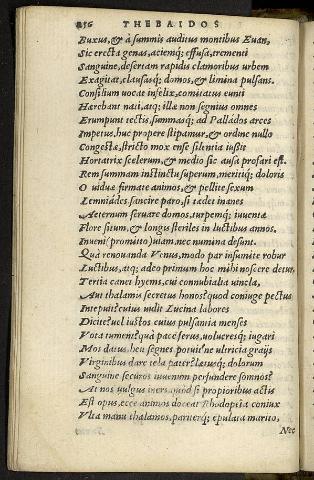 256 THEBAIDOS
Buxus, & à summis auditus montibus Euan,
Sic erecta genas, aciemq; effusa, trementi
Sanguine, desertam rapidis clamoribus urbem
Exagitat, clausasq; domos, & limina pulsans.
Consilium uocat infelix, comitatus eunti
Hærebant nati, atq; illæ non segnius omnes
Erumpunt tectis, summasq; ad Palládos arces
Impetus, huc propere stipamur, & ordine nullo
Congestæ, stricto mox ense silentia iussit
Hortatrix scelerum, & medio sic ausa profari est.
Rem summam instinctu superum, meritiq; doloris
O uiduæ firmate animos, & pellite sexum
Lemniádes sancire paro, si tædet inanes
Aeternum seruare domos, turpemq; iuuentæ
Flore situm, & longis steriles in luctibus annos.
Inueni (promitto) uiam, nec numina desunt.
Qua renouanda Venus, modo par insumite robur
Luctibus, atq; adeo primum hoc mihi noscere detur,
Tertia canet hyems, cui connubialia uincla,
Aut thalami secretus honos? quod coniuge pectus
Intepuit? cuius uidit Lucina labores
Dicite? uel iustos cuius pulsantia menses
Vota tument? qua pace feras, uolucresq; iugari
Mos datus, heu segnes potuit'ne ultricia graijs
Virginibus dare tela pater? lætusq; dolorum
Sanguine securos iuuenum perfundere somnos?
At nos uulgus iners, quod si propioribus actis
Est opus, ecce animos doceat Rhodopeia coniux
Vlta manu thalamos, pariterq; epulata marito,
Nec